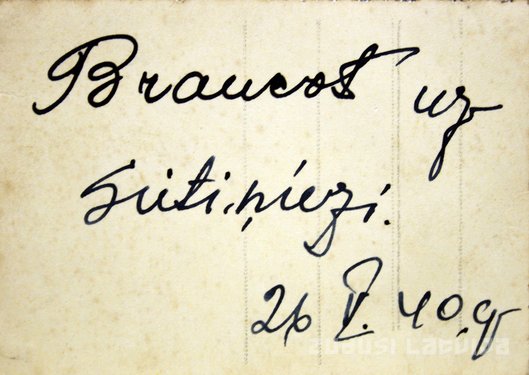 Braucot uz
Sūtiņiezi.
26 V. 40.g
zudusi Latvija